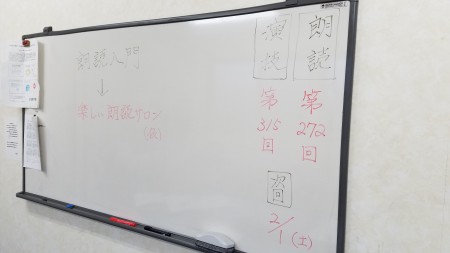 朗読
第
272
回
演技
第
315
回
次回
2/1(土)
朗読入門
↓
楽しい朗読サロン
(仮)